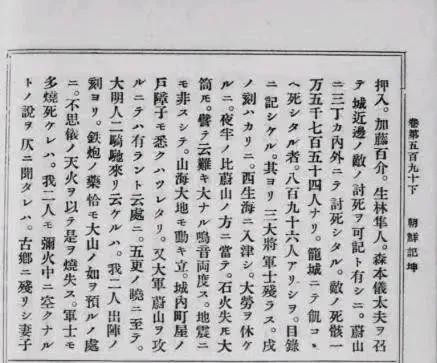 卷第五百九十下　朝鮮記坤
押入。加藤百介。生林隼人。森本儀太夫ヲ召
テ城近邊ノ敵ノ討死ヲ可記ト有シニ。蔚山
ニ三丁カ內外ニテ討死シタル。敵ノ死骸一
万五千七百五十四人ナリ。籠城ニテ飢コヽ
ヘ死シタル者。八百九十六人アリシヲ。目錄
ニ記シケル。其ヨリ三大將軍士殘ラス。戌
ノ刻ハカリニ。西生海ニ入津シ。大勞ヲ休ケ
ルニ。夜半ノ比蔚山ノ方ニ當テ。石火失モ大
筒モ。譬テ云難キ大ナル鳴音兩度ス。地震ニ
モ非スシテ。山海大地モ動キ立。城內町屋ノ
戶障子モ悉クハツレタリ。又大軍蔚山ヲ攻
ルニテハ有ラント云處ニ。五更ノ曉ニ至テ。
大明人二騎馳來リ云ケルハ。我二人出陣ノ
刻ヨリ。鉄炮ノ藥恰モ大山ノ如ヲ預ルノ處
ニ。不思儀ノ天火ヲ以テ是ヲ燒失ス。軍士モ
多燒死ケレハ。我二人モ彌火中ニ空クナル
トノ說ヲ仄ニ聞タレハ。古鄕ニ殘リシ妻子